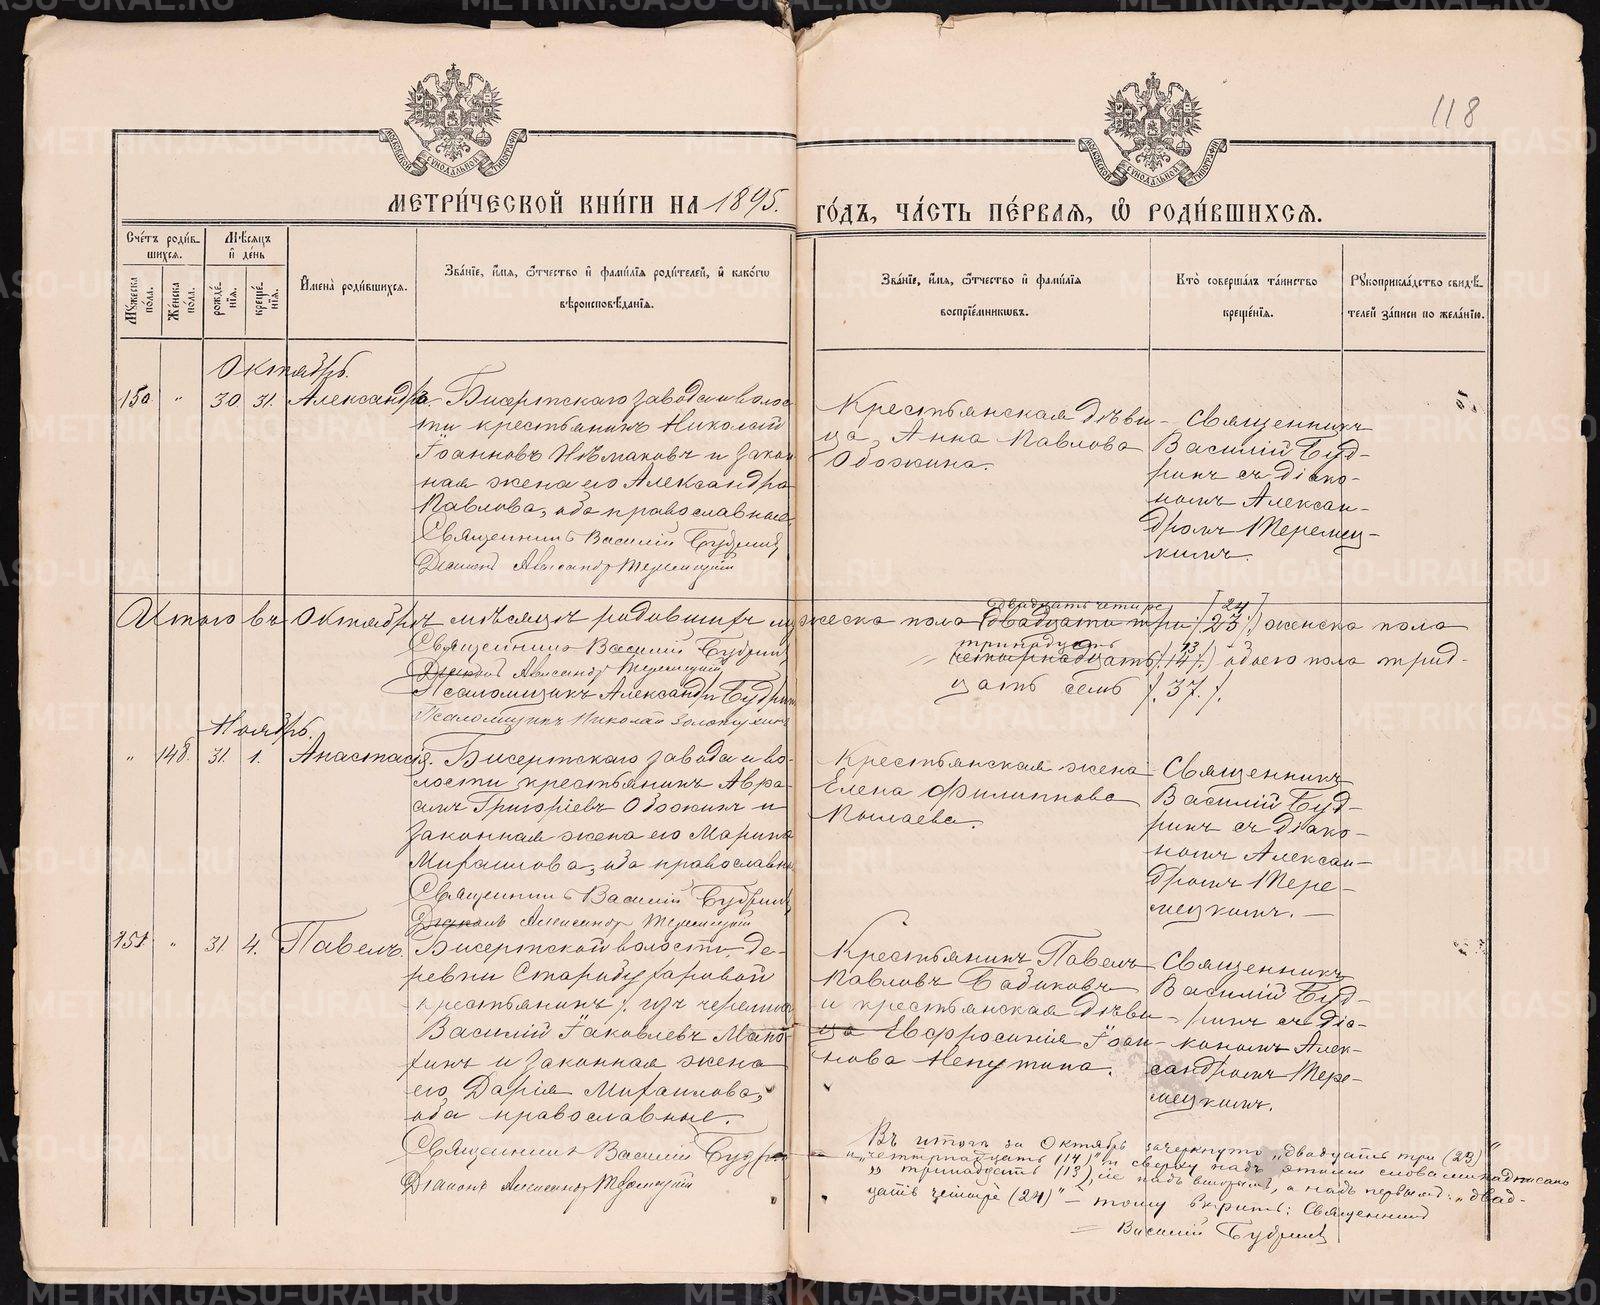 118
МЕТРИЧЕСКОЙ КНИГИ НА 1895.
ГОДЪ, ЧАСТЬ ПЕРВАЯ, Ѡ РОДИВШИХСЯ.
Счетъ родив-
шихся.
Мужеска пола.
Женска пола.
Мѣсяцъ и день
рожде-
нія.
креще-
нія.
Имена родившихся.
Званіе, имя, ѡтчество и фамилія родителей, и какогѡ
вѣроисповѣданія.
Званіе, имя, ѡтчество и фамилія
воспріемникѡвъ.
Кто совершалъ таинство
крещенія.
Рукоприкладство свидѣ-
телей записи по желанію.
Октябрь.
150 " 30. 31. Александръ.
Бисертскаго завода и волос
ти крестьянинъ Николай
Іоанновъ и закон
ная жена его Александра
Павлова, оба православные
Священникъ Василій Будринъ
Діаконъ Александръ Теремецкій
Крестьянская дѣви-
ца, Анна Павлова
Обожина.
Священникъ
Василій Буд-
ринъ съ діако-
номъ Алексан-
дромъ Теремец-
кимъ.
двадцать четыре [24]
Итого въ Октябрѣ мѣсяцѣ родившихъ мужеска пола двадцать три (23) женска пола
тринадцать 13
четырнадцать (14) обоего пола трид-
цать семь (37).
Священникъ Василій Будринъ
Діаконъ Александръ Теремецкій
Псаломщикъ Александръ Будрин
Псаломщикъ Николай
Ноябрь.
" 148. 31. 1. Анастасія.
Бисертскаго завода и во-
лости крестьянинъ Авра-
амъ Григоріевъ Обожинъ и
законная жена его Марина
Михаилова, оба православны
Священникъ Василій Будринъ
Діаконъ Александръ Теремецкій
Крестьянская жена
Елена Филиппова
Священникъ
Василій Буд-
ринъ съ діако-
номъ Алексан-
дромъ Тере-
мецкимъ.
151 " 31 4. Павелъ.
Бисертской волости, де-
ревни Старобухаровой
крестьянинъ
Василій Іаковлевъ
и законная жена
его Дарія Михаилова,
оба православные.
Священникъ Василій Будрин
Діаконъ Александръ Теремецкій
Крестьянинъ Павелъ
Павловъ Бабиковъ
и крестьянская дѣви-
ца Евфросинія Іоан-
нова Непутина.
Священникъ
Василій Буд-
ринъ съ діа-
кономъ Алек-
сандромъ Тере-
мецкимъ.
Въ итогѣ за Октябрь зачеркнуто „двадцать три (23)"
и „четырнадцать (14)" и сверху надъ этими словами надписано
„тринадцать (13)" надъ вторымъ, а надъ первымъ: „двад-
цать четыре (24)" – тому вѣрить: Священникъ
Василій Будринъ